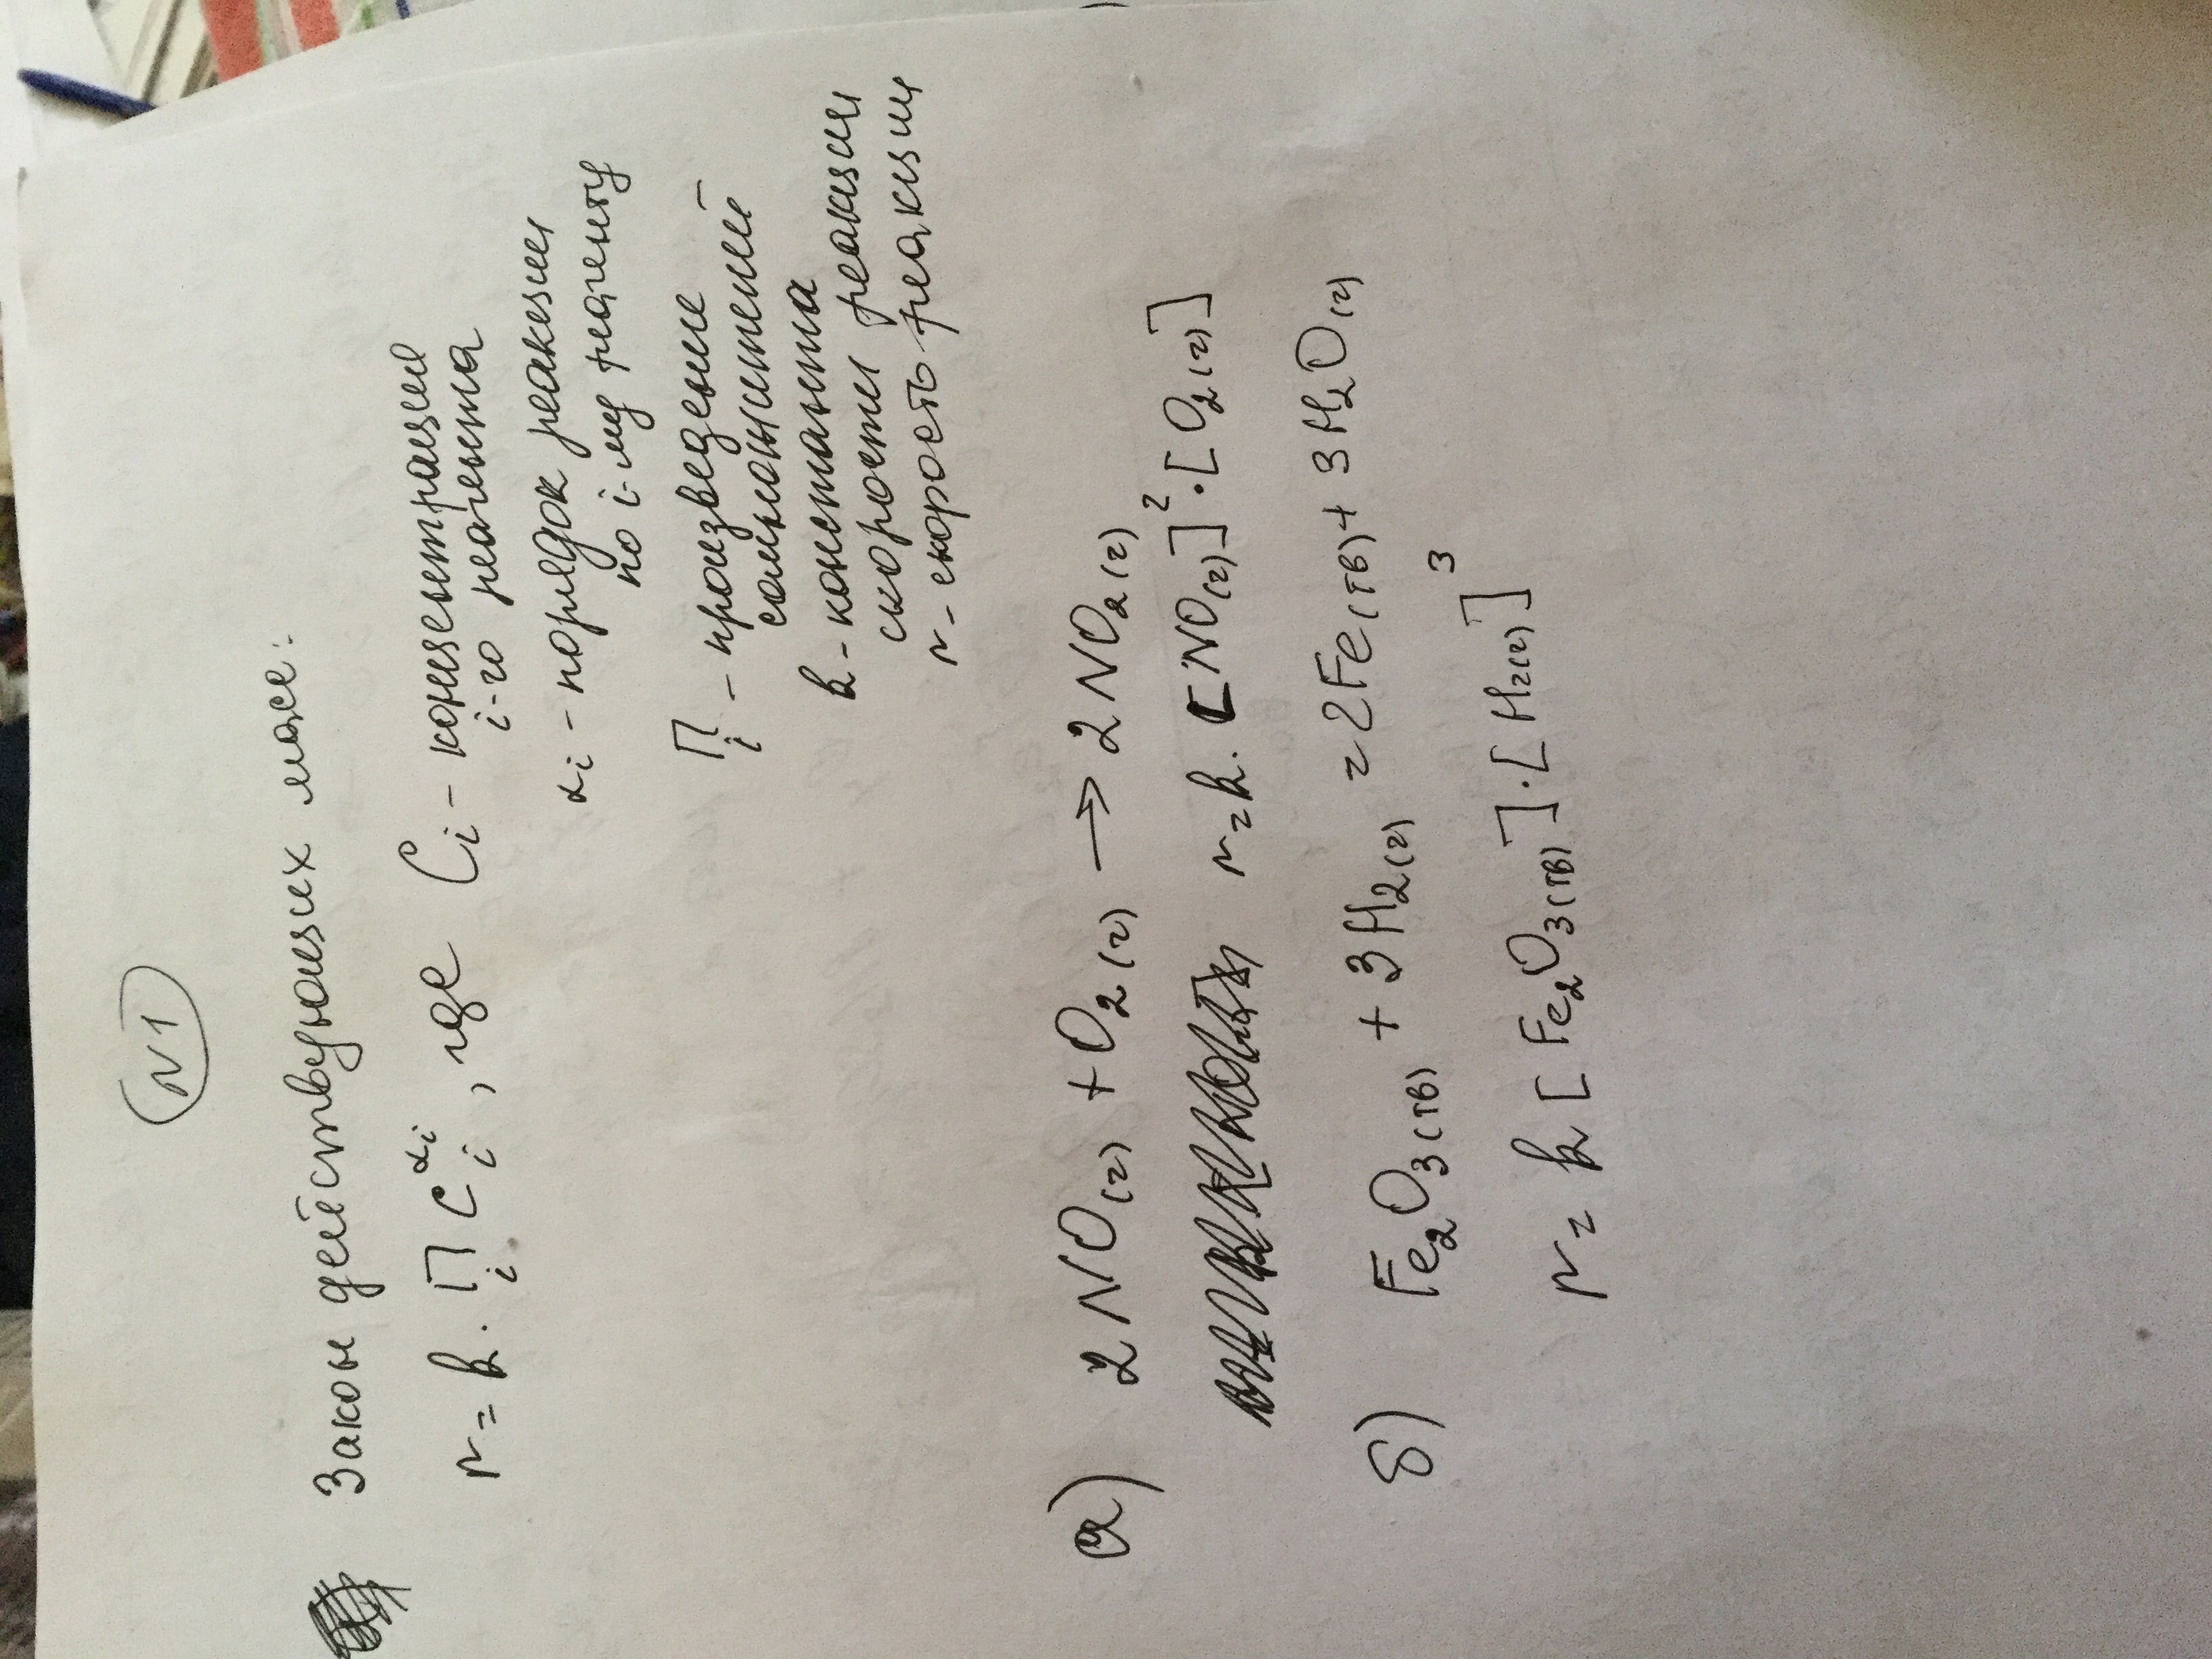 N1
Закон действующих масс:
r = k · П_i C_i^αi, где C_i – концентрация
i-го реагента
α_i – порядок реакции
по i-му реагенту
П_i – произведение
сомножителей
k – константа
скорости реакции
r – скорость реакции
а) 2NO(г) + O₂(г) → 2NO₂(г)
r = k · [NO(г)]² · [O₂(г)]
б) Fe₂O₃(тв) + 3H₂(г) = 2Fe(тв) + 3H₂O(г)
r = k [Fe₂O₃(тв)] · [H₂(г)]³